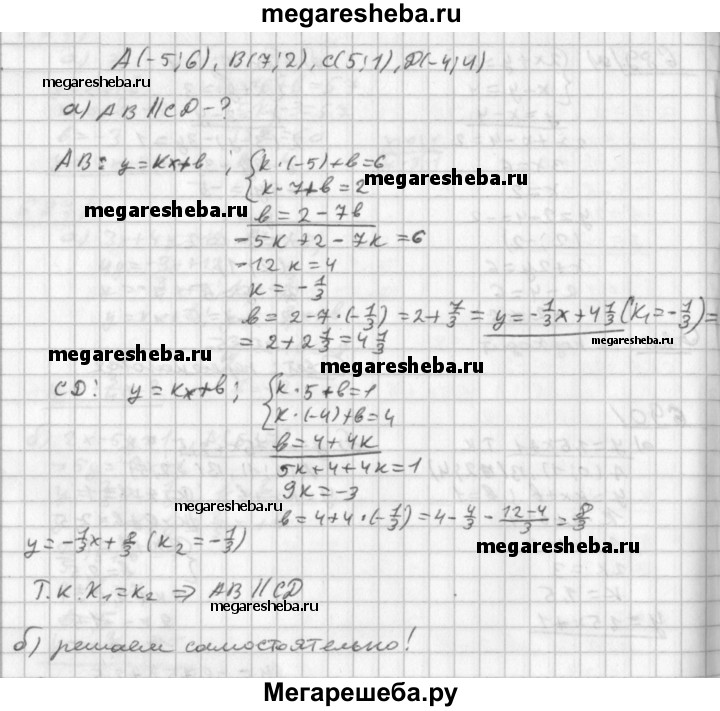 megaresheba.ru
A(-5;6), B(7;2), C(5;1), D(-4;4)
megaresheba.ru
а) AB || CD - ?
AB: y=kx+b ; { k·(-5)+b=6
k·7+b=2
megaresheba.ru
megaresheba.ru
b=2-7b
-5k+2-7k=6
-12k=4
k=-1/3
b=2-7·(-1/3)=2+7/3= y=-1/3x+4 1/3 (k₁=-1/3)=
= 2+2 1/3=4 1/3
megaresheba.ru
megaresheba.ru
CD: y=kx+b; { k·5+b=1
k·(-4)+b=4
b=4+4k
5k+4+4k=1
9k=-3
megaresheba.ru
b=4+4·(-1/3)=4-4/3-12-4/3=8/3
y=-1/3x+8/3 (k₂=-1/3)
megaresheba.ru
Т.к. k₁=k₂ ⇒ AB || CD
megaresheba.ru
megaresheba.ru
б) решаем самостоятельно!
Мегарешеба.ру